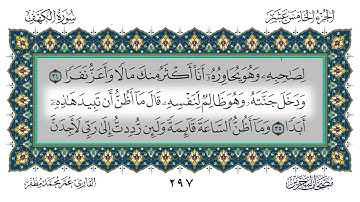 الجزء الخامس عشر
سورة الكهف
لِصَٰحِبِهِۦ وَهُوَ يُحَاوِرُهُۥٓ أَنَا۠ أَكْثَرُ مِنكَ مَالًا وَأَعَزُّ نَفَرًا ٣٤
وَدَخَلَ جَنَّتَهُۥ وَهُوَ ظَالِمٌ لِّنَفْسِهِۦ قَالَ مَآ أَظُنُّ أَن تَبِيدَ هَٰذِهِۦٓ
أَبَدًا ٣٥ وَمَآ أَظُنُّ ٱلسَّاعَةَ قَآئِمَةً وَلَئِن رُّدِدتُّ إِلَىٰ رَبِّى لَأَجِدَنَّ
القارئ عمر محمد مظفر
٢٩٧
مصحف البحرين